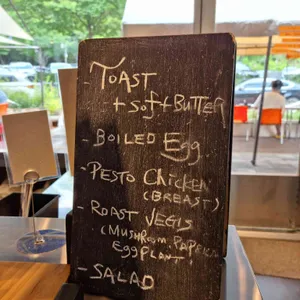 - TOAST
+ Soft BUTTER
- BOILED Egg
- PESTO CHICKEN
(BREAST)
- ROAST VEGIS
(MUSHROOM, PAPRIKA
EGGPLANT)
- SALAD